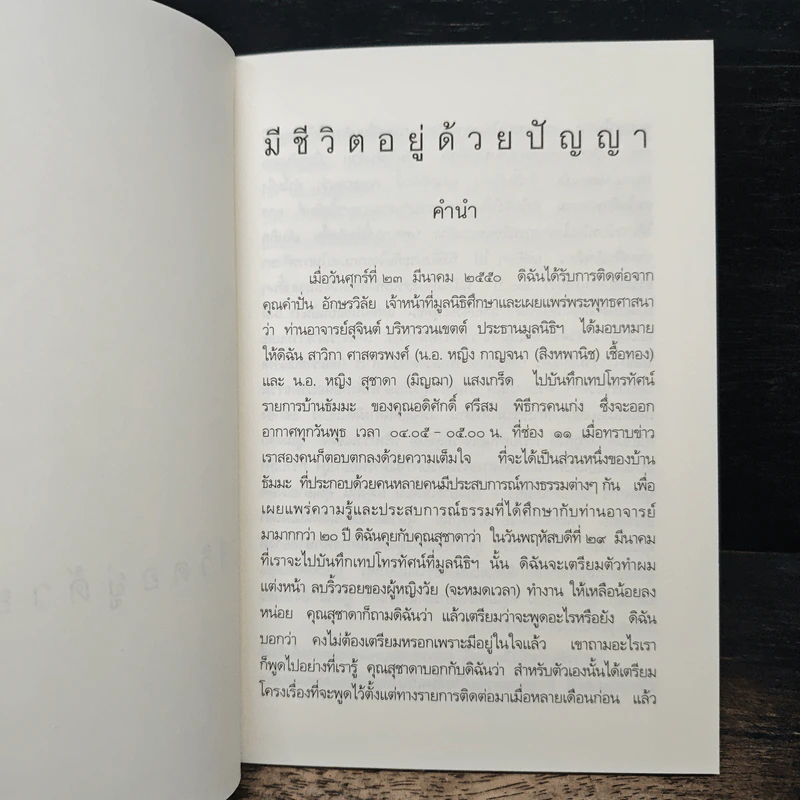 มีชีวิตอยู่ด้วยปัญญา
คำนำ
เมื่อวันศุกร์ที่ ๒๓ มีนาคม ๒๕๕๐ ดิฉันได้รับการติดต่อจาก
คุณคำปั่น อักษรวิลัย เจ้าหน้าที่มูลนิธิศึกษาและเผยแพร่พระพุทธศาสนา
ว่า ท่านอาจารย์สุจินต์ บริหารวนเขตต์ ประธานมูลนิธิฯ ได้มอบหมาย
ให้ดิฉัน สาวิกา ศาสตรพงศ์ (น.อ. หญิง กาญจนา (สิงหพานิช) เชื้อทอง)
และ น.อ. หญิง สุชาดา (มิญฌา) แสงเกร็ด ไปบันทึกเทปโทรทัศน์
รายการบ้านธัมมะ ของคุณอดิศักดิ์ ศรีสม พิธีกรคนเก่ง ซึ่งจะออก
อากาศทุกวันพุธ เวลา ๐๔.๐๕ - ๐๕.๐๐ น. ที่ช่อง ๑๑ เมื่อทราบข่าว
เราสองคนก็ตอบตกลงด้วยความเต็มใจ ที่จะได้เป็นส่วนหนึ่งของบ้าน
ธัมมะ ที่ประกอบด้วยคนหลายคนมีประสบการณ์ทางธรรมต่างๆ กัน เพื่อ
เผยแพร่ความรู้และประสบการณ์ธรรมที่ได้ศึกษากับท่านอาจารย์
มามากกว่า ๒๐ ปี ดิฉันคุยกับคุณสุชาดาว่า ในวันพฤหัสบดีที่ ๒๙ มีนาคม
ที่เราจะไปบันทึกเทปโทรทัศน์ที่มูลนิธิฯ นั้น ดิฉันจะเตรียมตัวทำผม
แต่งหน้า ลบริ้วรอยของผู้หญิงวัย (จะหมดเวลา) ทำงาน ให้เหลือน้อยลง
หน่อย คุณสุชาดาก็ถามดิฉันว่า แล้วเตรียมว่าจะพูดอะไรหรือยัง ดิฉัน
บอกว่า คงไม่ต้องเตรียมหรอกเพราะมีอยู่ในใจแล้ว เขาถามอะไรเรา
ก็พูดไปอย่างที่เรารู้ คุณสุชาดาบอกกับดิฉันว่า สำหรับตัวเองนั้นได้เตรียม
โครงเรื่องที่จะพูดไว้ตั้งแต่ทางรายการติดต่อมาเมื่อหลายเดือนก่อน แล้ว